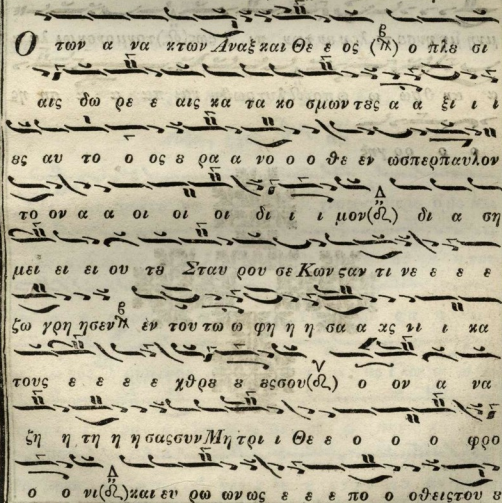 Ο των α να κτων Αναξ και Θε ε ος (β) ο πλε σι
αις δω ρε ε αις κα τα κο σμων τες α α ξι ι ι
ες αυ το ο ος ε ρα α νο ο ο θε εν ωσπερ παυλον
το ον α α οι οι οι δι ι ι μον (Δ) δι α ση
μει ει ει ου τε Σταυ ρου σε Κων ςαν τι νε ε ε ε
ζω γρη η σεν β εν του τω ω φη η η σα α ας νι ι κα
τους ε ε ε ε χθρε ε ε ες σου () ο ον α να
ζη η τη η η σας συν Μη τρι ι Θε ε ο ο ο φρο
ο ο νι (Δ) και ευ ρω ων ως ε ε ε πο ο οθεις του ε